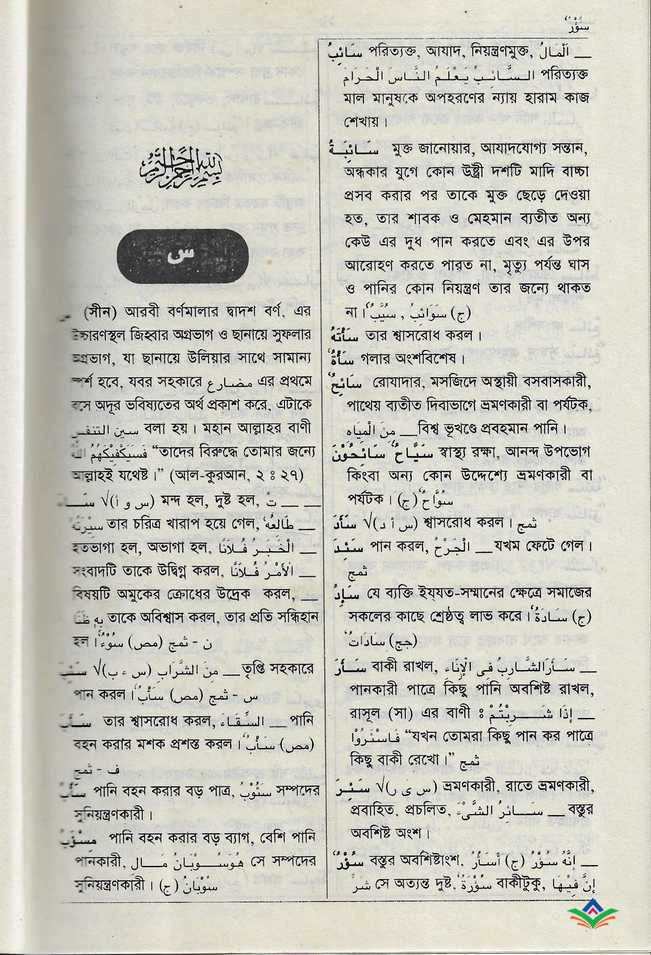 سُؤْرٌ
بسم الله الرحمن الرحيم
س
(সীন) আরবী বর্ণমালার দ্বাদশ বর্ণ, এর
উচ্চারণস্থল জিহ্বার অগ্রভাগ ও ছানায়ে সুফলার
অগ্রভাগ, যা ছানায়ে উলিয়ার সাথে সামান্য
স্পর্শ হবে, যবর সহকারে مضارع এর প্রথমে
বসে অদূর ভবিষ্যতের অর্থ প্রকাশ করে, এটাকে
سين التنفيس বলা হয়। মহান আল্লাহর বাণী
فَسَيَكْفِيْكَهُمُ اللّٰهُ “তাদের বিরুদ্ধে তোমার জন্যে
আল্লাহই যথেষ্ট।” (আল-কুরআন, ২ ঃ ২৭)
سَاءَ √(س و أ) মন্দ হল, দুষ্ট হল, __ تْ
سِيْرَتُهُ তার চরিত্র খারাপ হয়ে গেল, __ طَالِعُهُ
হতভাগা হল, অভাগা হল, __ الْخَبَرُ فُلَانًا
সংবাদটি তাকে উদ্বিগ্ন করল, __ الْأَمْرُ فُلَانًا
বিষয়টি অমুকের ক্রোধের উদ্রেক করল, __
بِهِ ظَنًّا তাকে অবিশ্বাস করল, তার প্রতি সন্ধিহান
হল। ن - ثمج (مص) سُوْءٌ
سَئِبَ √(س ء ب) __ مِنَ الشَّرَابِ তৃপ্তি সহকারে
পান করল। س - ثمج (مص) سَأْبٌ
سَأَبَ তার শ্বাসরোধ করল, __ السِّقَاءَ পানি
বহন করার মশক প্রশস্ত করল। (مص) سَأْبٌ
ف - ثمج
سَأْبٌ পানি বহন করার বড় পাত্র, سُئُوْبٌ সম্পদের
সুনিয়ন্ত্রণকারী।
مِسْئَوْبٌ পানি বহন করার বড় ব্যাগ, বেশি পানি
পানকারী, هُوَ سُوْبَانُ مَالٍ সে সম্পদের
সুনিয়ন্ত্রণকারী। (ج) سُوْبَانٌ
سَائِبٌ পরিত্যক্ত, আযাদ, নিয়ন্ত্রণমুক্ত, __ اَلْمَالُ
السَّائِبُ يَعْلَمُ النَّاسَ الْحَرَامَ পরিত্যক্ত
মাল মানুষকে অপহরণের ন্যায় হারাম কাজ
শেখায়।
سَائِبَةٌ মুক্ত জানোয়ার, আযাদযোগ্য সন্তান,
অন্ধকার যুগে কোন উষ্ট্রী দশটি মাদি বাচ্চা
প্রসব করার পর তাকে মুক্ত ছেড়ে দেওয়া
হত, তার শাবক ও মেহমান ব্যতীত অন্য
কেউ এর দুধ পান করতে এবং এর উপর
আরোহণ করতে পারত না, মৃত্যু পর্যন্ত ঘাস
ও পানির কোন নিয়ন্ত্রণ তার জন্যে থাকত
না। (ج) سَوَائِبُ ، سُيَّبٌ
سَأَتَهُ তার শ্বাসরোধ করল।
سَأْةٌ গলার অংশবিশেষ।
سَائِحٌ রোযাদার, মসজিদে অস্থায়ী বসবাসকারী,
পাথেয় ব্যতীত দিবাভাগে ভ্রমণকারী বা পর্যটক,
مِنَ الْمِيَاهِ __ বিশ্ব ভূখণ্ডে প্রবহমান পানি।
سَيَّاحٌ سَائِحُوْنَ স্বাস্থ্য রক্ষা, আনন্দ উপভোগ
কিংবা অন্য কোন উদ্দেশ্যে ভ্রমণকারী বা
পর্যটক। (ج) سُوَّاحٌ
سَأَدَ √(س أ د) শ্বাসরোধ করল। ثمج
سَئِدَ পান করল, __ الْجَرْحُ যখম ফেটে গেল।
ثمج
سَادٌ যে ব্যক্তি ইয্‌যত-সম্মানের ক্ষেত্রে সমাজের
সকলের কাছে শ্রেষ্ঠত্ব লাভ করে। (ج) سَادَةٌ
(جج) سَادَاتٌ
سَأَرَ বাকী রাখল, __ سَأَرَ الشَّارِبُ فِى الْإِنَاءِ
পানকারী পাত্রে কিছু পানি অবশিষ্ট রাখল,
রাসূল (সা) এর বাণী ঃ __ إِذَا شَرِبْتُمْ
فَاسْئَرُوْا “যখন তোমরা কিছু পান কর পাত্রে
কিছু বাকী রেখো।” ثمج
سَئِرَ √(س ى ر) ভ্রমণকারী, রাতে ভ্রমণকারী,
প্রবাহিত, প্রচলিত, سَائِرُ الشَّىْءِ __ বস্তুর
অবশিষ্ট অংশ।
سُؤْرٌ বস্তুর অবশিষ্টাংশ, (ج) أَسْأَرٌ __ إِنَّهُ سُؤْرُ
شَرٍّ সে অত্যন্ত দুষ্ট, سُؤْرَةٌ বাকীটুকু, إِنَّ فِيْهَا